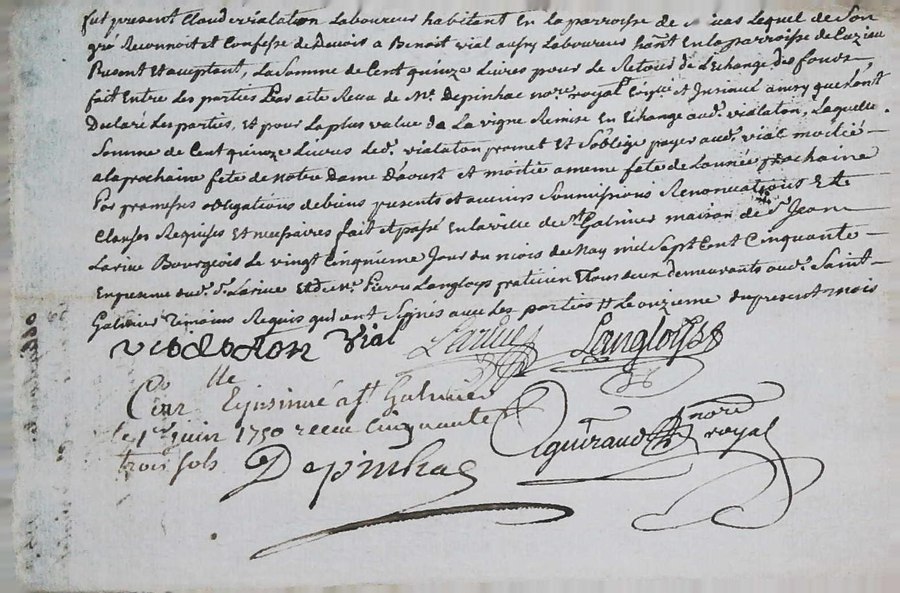 fut present Claude vialaton Laboureur habitant En La parroisse de Lequel de Son
gré Reconnoit et Confesse de devoir a Benoit vial aussy Laboureur hant En la parroisse de
Present et acceptant, La Somme de Cent quinze Livres pour Le Retour de L'Echange des fonds
fait Entre Les parties Par acte Receu de Me. Depinhac nore. royal Et Insinué ainsy que L'ont
Declaré Les parties, et pour La plus value de La vigne Remise En Echange aud. vialaton, Laquelle
Somme de Cent quinze Livres led. vialaton promet Et S'oblige payer aud. vial moitié
a la prochaine fete de notre Dame D'aoust et moitié a meme fete de L'année prochaine
Par promesses obligations de biens presents et avenirs Soummissions Renonciations Et
Clauses Requises Et necessaires fait et passé En la ville de St. Galmier maison de Sr. Jean
Larive Bourgeois Le vingt Cinquieme Jour du mois de May mil Sept Cent Cinquante
En presence dud. Sr. Larive Et de Me. Pierre Langloys praticien Tous deux demeurants aud. Saint
Galmier temoins Requis qui ont Signés avec Les parties Le onzieme du present mois
vialaton Vial Larive Langloys
Conlle Et insinué a St. Galmier
le 1er juin 1750 receu Cinquante
trois sols
Depinhac
Aguiraud nore royal